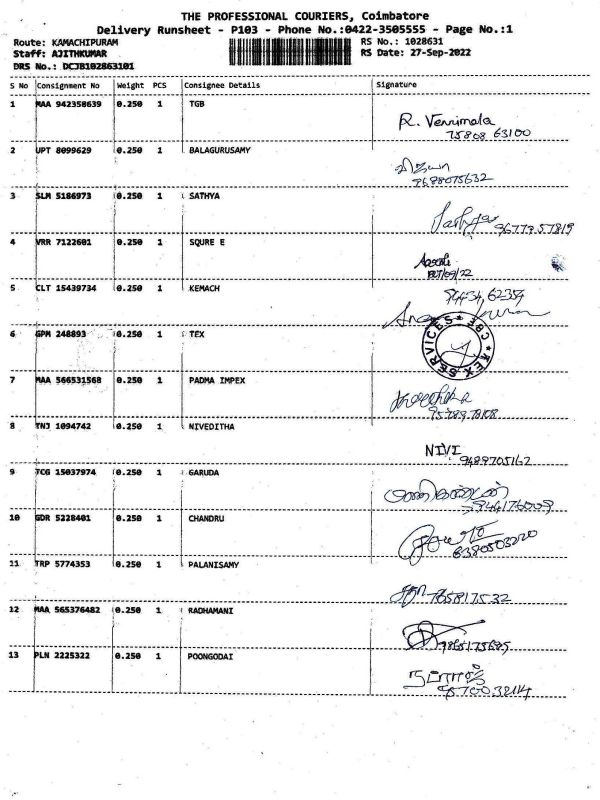 THE PROFESSIONAL COURIERS, Coimbatore
Delivery Runsheet - P103 - Phone No.:0422-3505555 - Page No.:1
Route: KAMACHIPURAM RS No.: 1028631
Staff: AJITHKUMAR RS Date: 27-Sep-2022
DRS No.: DCJB102863101
S No Consignment No Weight PCS Consignee Details Signature
1 MAA 942358639 0.250 1 TGB
R. Vennimala
75808 63100
2 UPT 8099629 0.250 1 BALAGURUSAMY
விஜயா
9688075632
3 SLM 5186973 0.250 1 SATHYA
Sathya 9677357819
4 VRR 7122601 0.250 1 SQURE E
5 CLT 15439734 0.250 1 KEMACH
94434 62354
6 GPM 248893 0.250 1 TEX
TEX SERVICES * CBE *
7 MAA 566531568 0.250 1 PADMA IMPEX
8 TNJ 1094742 0.250 1 NIVEDITHA
NIVI
9489705162
9 TCG 15037974 0.250 1 GARUDA
மணிகண்டன்
9944176009
10 GDR 5228401 0.250 1 CHANDRU
6380503220
11 TRP 5774353 0.250 1 PALANISAMY
12 MAA 565376482 0.250 1 RADHAMANI
13 PLN 2225322 0.250 1 POONGODAI
நடராஜ்
9570032114